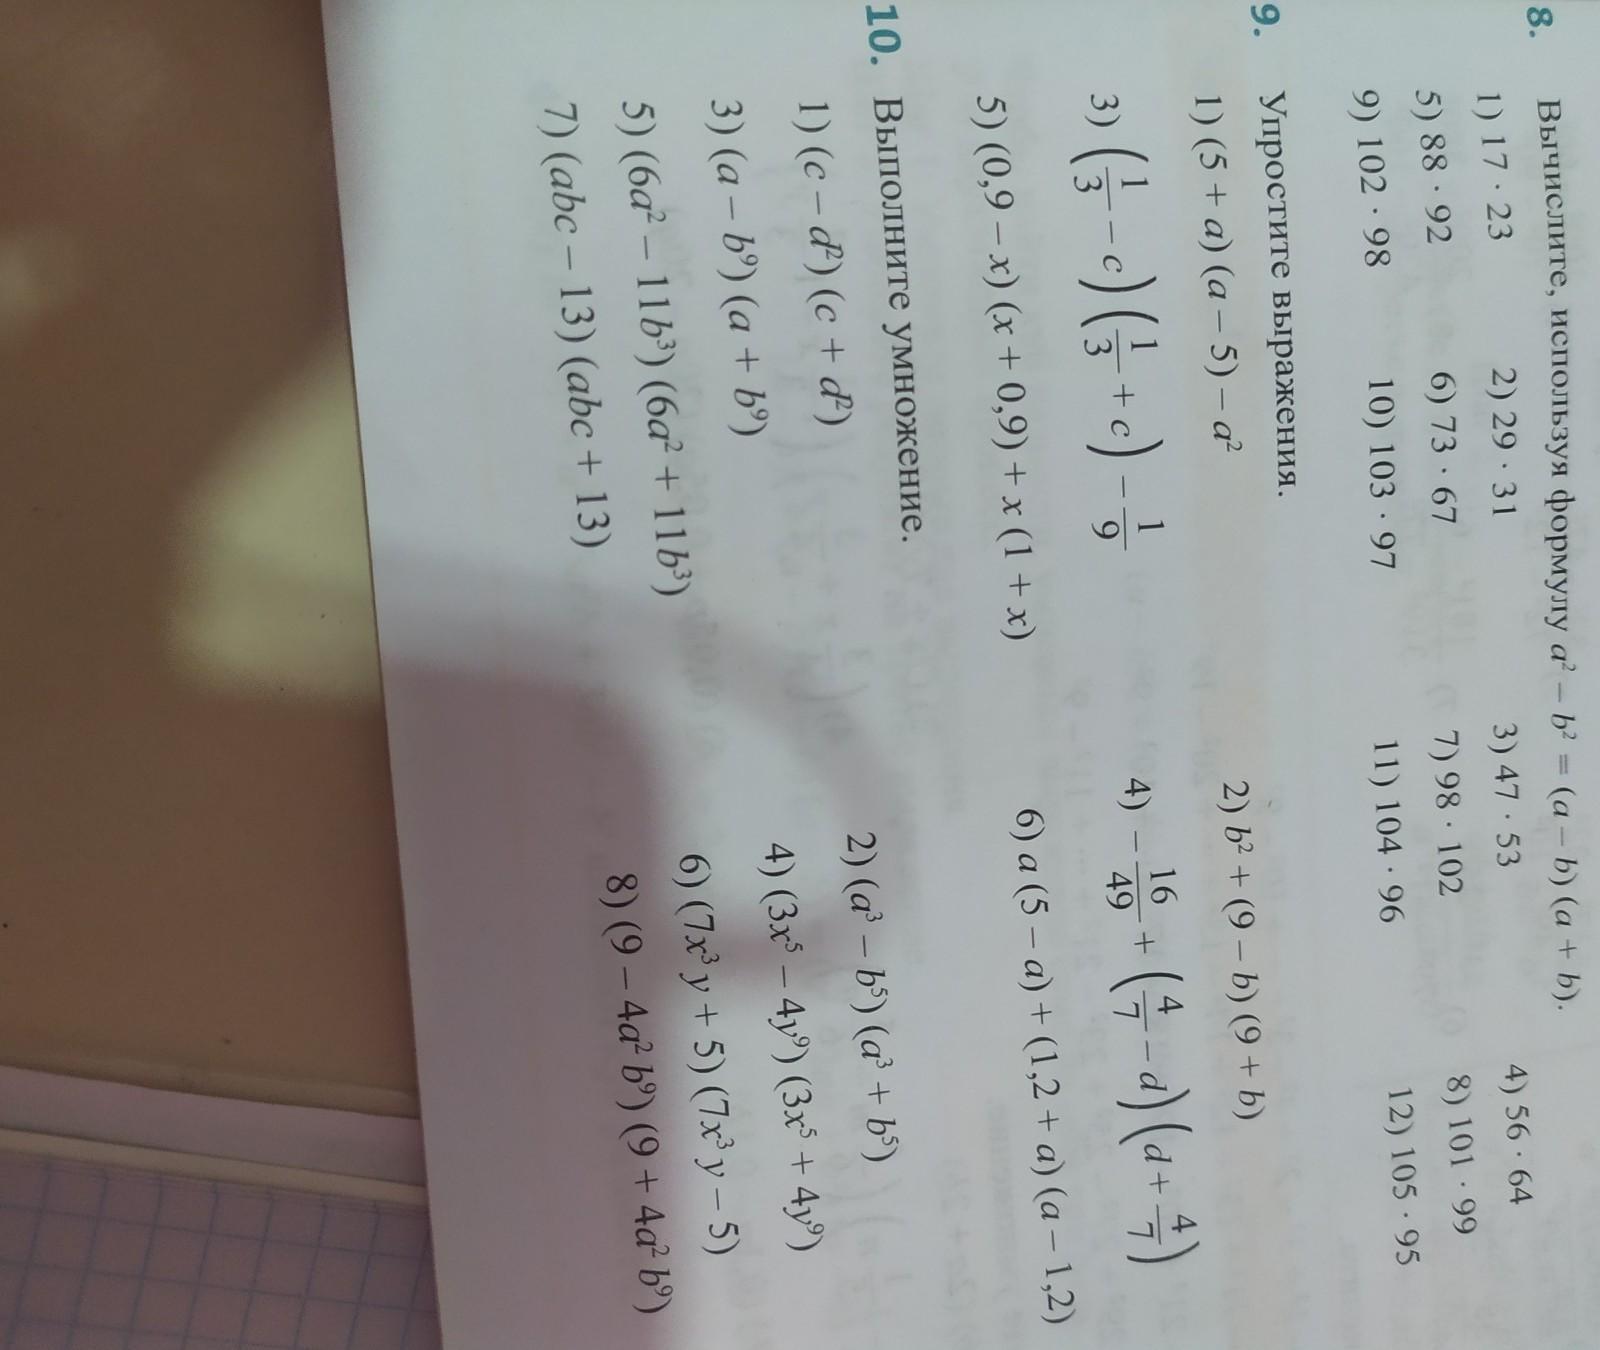 8. Вычислите, используя формулу a² – b² = (a – b) (a + b).
1) 17 · 23 2) 29 · 31 3) 47 · 53 4) 56 · 64
5) 88 · 92 6) 73 · 67 7) 98 · 102 8) 101 · 99
9) 102 · 98 10) 103 · 97 11) 104 · 96 12) 105 · 95
9. Упростите выражения.
1) (5 + a) (a – 5) – a² 2) b² + (9 – b) (9 + b)
3) (1/3 – c) (1/3 + c) – 1/9 4) – 16/49 + (4/7 – d) (d + 4/7)
5) (0,9 – x) (x + 0,9) + x (1 + x) 6) a (5 – a) + (1,2 + a) (a – 1,2)
10. Выполните умножение.
1) (c – d²) (c + d²) 2) (a³ – b⁵) (a³ + b⁵)
3) (a – b⁹) (a + b⁹) 4) (3x⁵ – 4y⁹) (3x⁵ + 4y⁹)
5) (6a² – 11b³) (6a² + 11b³) 6) (7x³y + 5) (7x³y – 5)
7) (abc – 13) (abc + 13) 8) (9 – 4a²b⁹) (9 + 4a²b⁹)